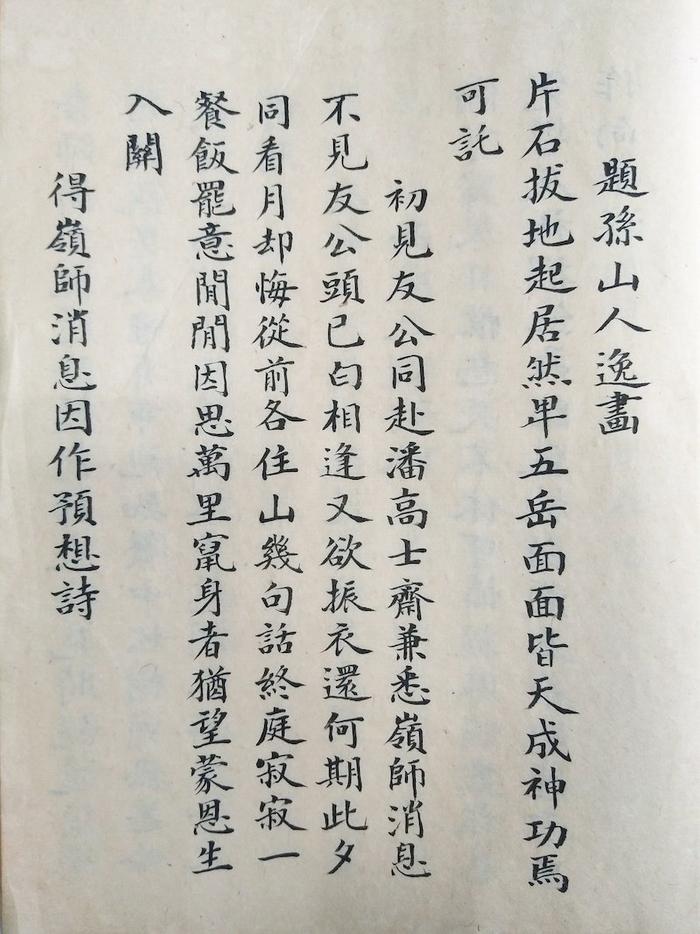 題孫山人逸畫
片石拔地起居然卑五岳面面皆天成神功焉
可託
初見友公同赴潘高士齋兼悉嶺師消息
不見友公頭已白相逢又欲振衣還何期此夕
同看月却悔從前各住山幾句話終庭寂寂一
餐飯罷意閒閒因思萬里竄身者猶望蒙恩生
入關
得嶺師消息因作預想詩